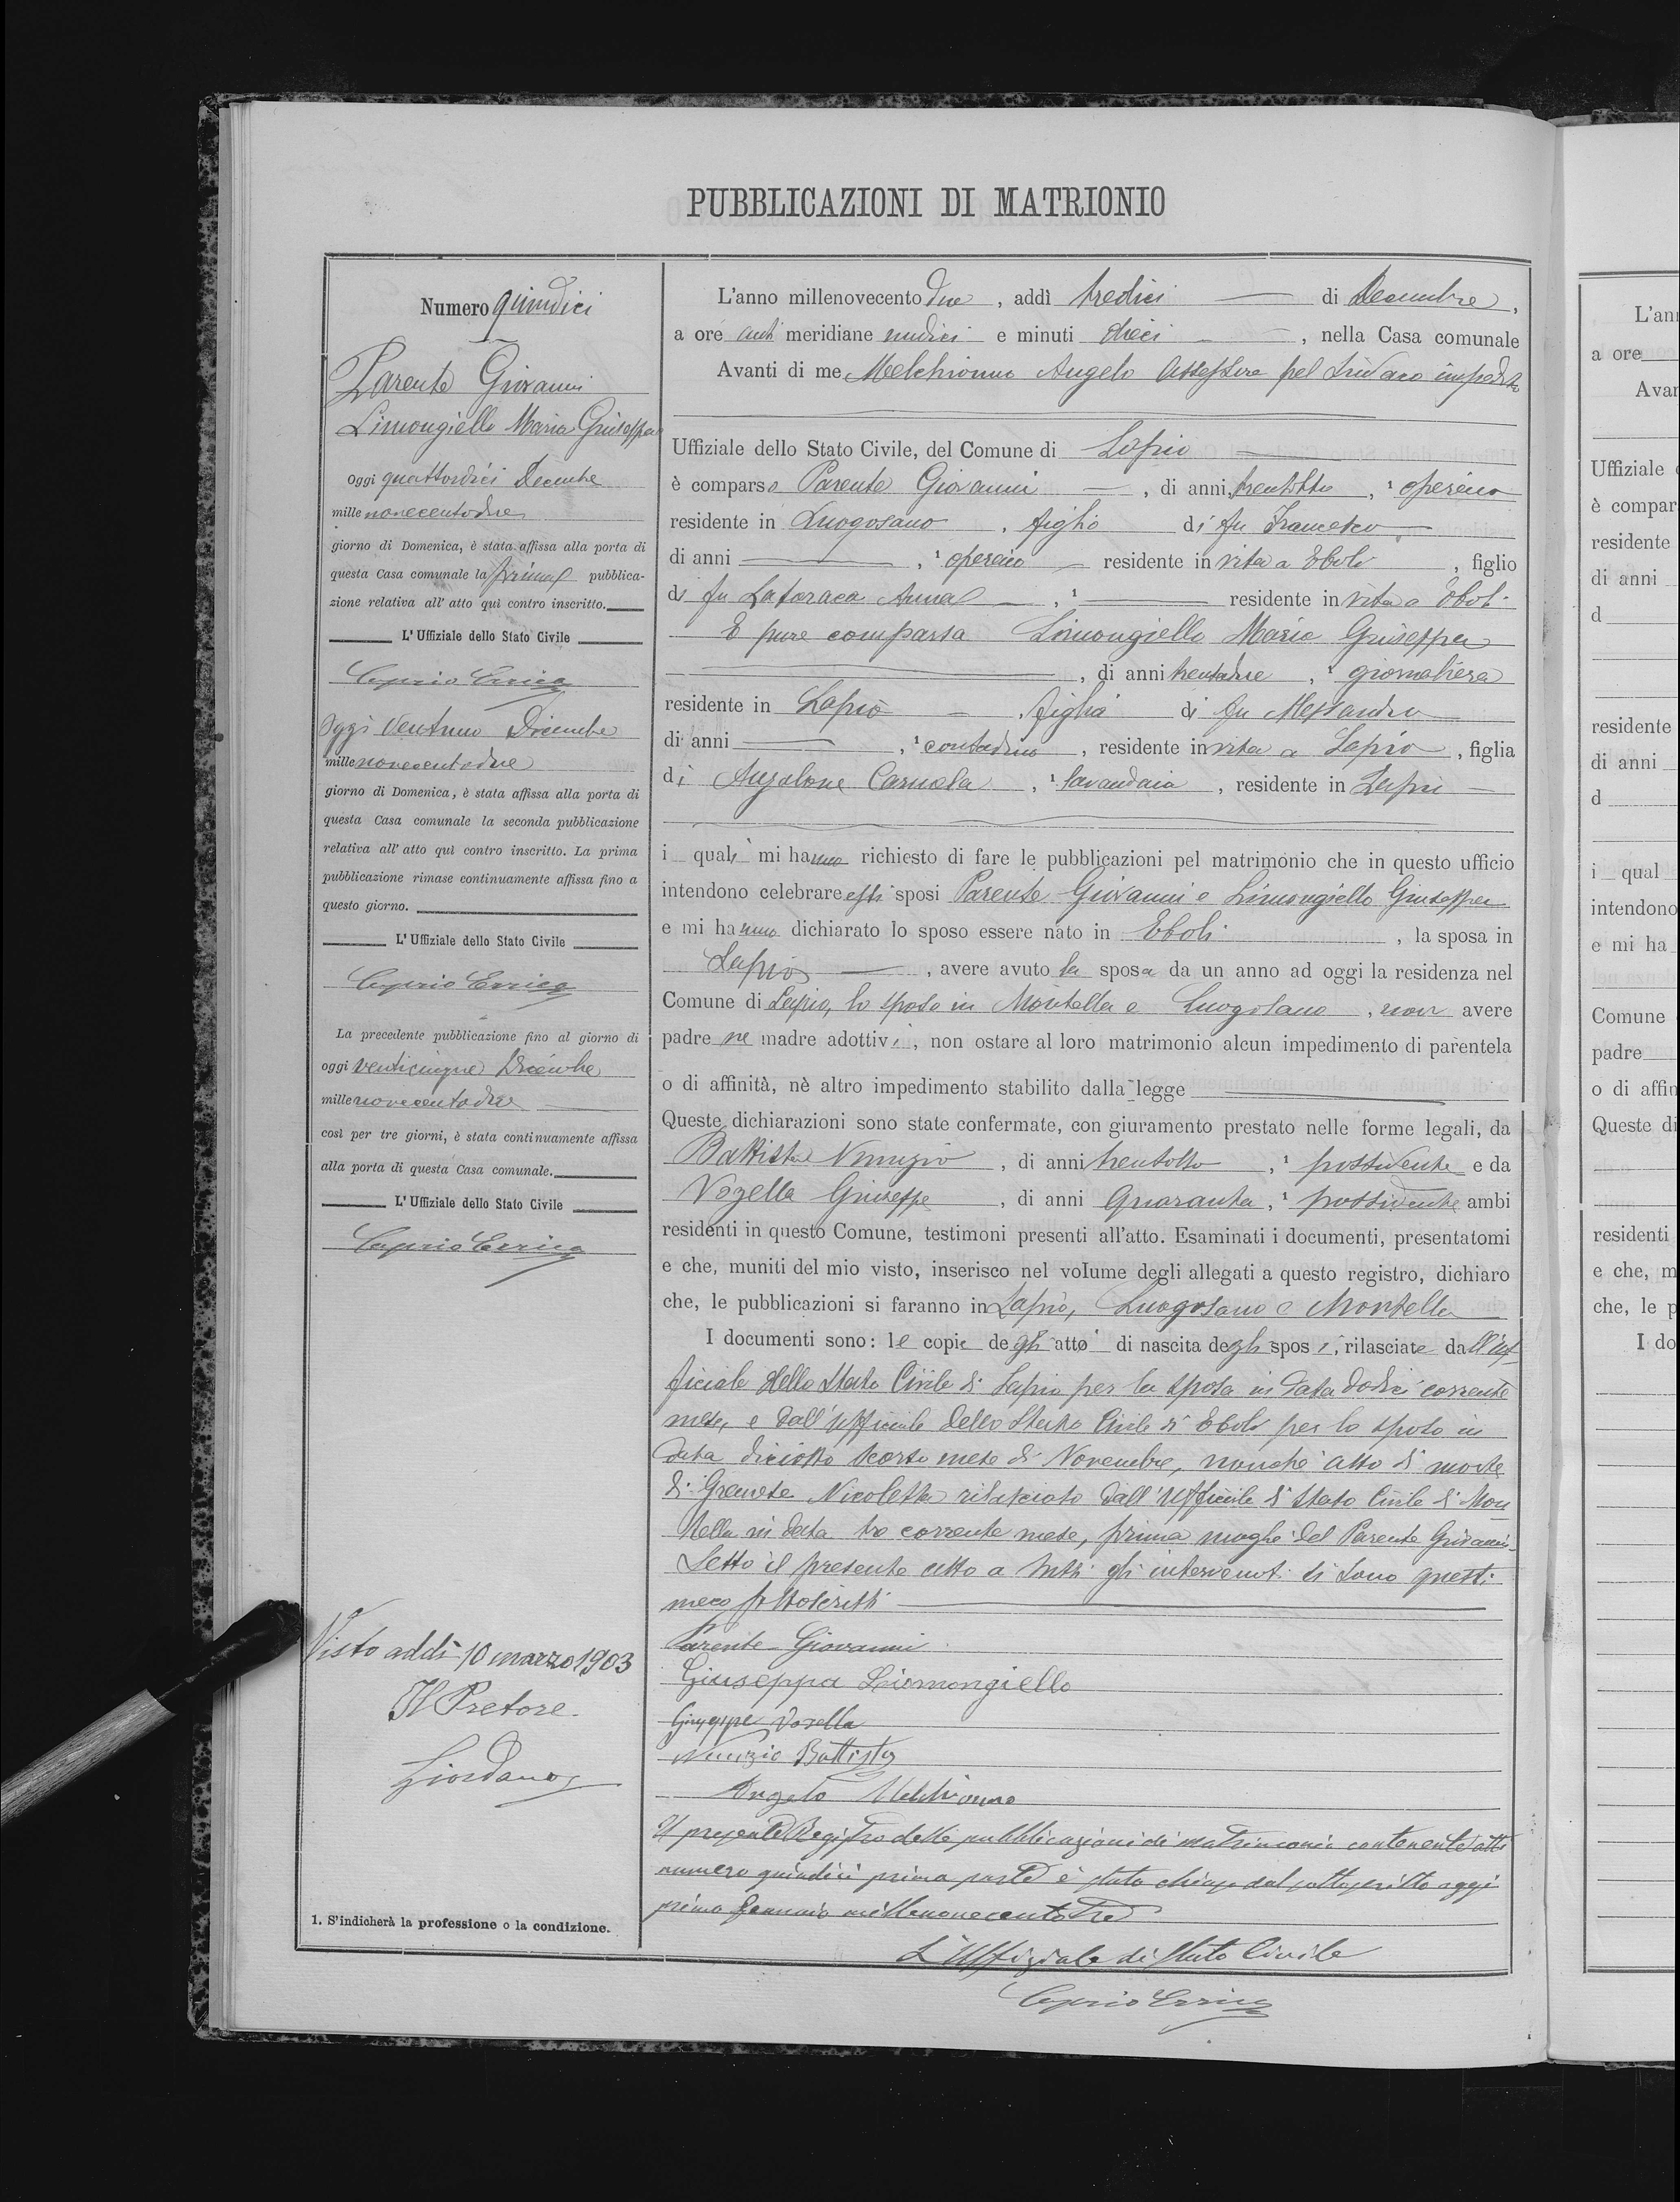 PUBBLICAZIONI DI MATRIONIO
Numero quindici
Parente Giovanni
Limongiello Maria Giuseppa
Oggi quattordici Decembre
mille novecentodue
giorno di Domenica, è stata affissa alla porta di
questa Casa comunale la prima pubblica-
zione relativa all' atto quì contro inscritto.
L' Uffiziale dello Stato Civile
Caprio Errico
Oggi Ventuno Dicembre
mille novecentodue
giorno di Domenica, è stata affissa alla porta di
questa Casa comunale la seconda pubblicazione
relativa all' atto quì contro inscritto. La prima
pubblicazione rimase continuamente affissa fino a
questo giorno.
L' Uffiziale dello Stato Civile
Caprio Errico
La precedente pubblicazione fino al giorno di
oggi venticinque Dicembre
mille novecentodue
così per tre giorni, è stata continuamente affissa
alla porta di questa Casa comunale.
L' Uffiziale dello Stato Civile
Caprio Errico
Visto addì 10 marzo 1903
Il Pretore.
Giordano
1. S'indicherà la professione o la condizione.
L'anno millenovecento due, addì tredici di Decembre,
a ore anti meridiane undici e minuti dieci, nella Casa comunale
Avanti di me Melchionno Angelo Assessore pel Sindaco impedito
Uffiziale dello Stato Civile, del Comune di Lapio
è comparso Parente Giovanni, di anni trentotto, ¹ operaio
residente in Luogosano, figlio di fu Francesco
di anni, ¹ operaio residente in vita a Eboli, figlio
di fu Anna, ¹ residente in vita a Eboli
E pure comparsa Limongiello Maria Giuseppa
, di anni trentadue, ¹ giornaliera
residente in Lapio, figlia di fu Alessandro
di anni, ¹ contadino, residente in vita a Lapio, figlia
di Carmela, ¹ lavandaia, residente in Lapio
i quali mi hanno richiesto di fare le pubblicazioni pel matrimonio che in questo ufficio
intendono celebrare essi sposi Parente Giovanni e Limongiello Giuseppa
e mi hanno dichiarato lo sposo essere nato in Eboli, la sposa in
Lapio, avere avuto la sposa da un anno ad oggi la residenza nel
Comune di Lapio, lo sposo in Montella e Luogosano, non avere
padre ne madre adottivi, non ostare al loro matrimonio alcun impedimento di parentela
o di affinità, nè altro impedimento stabilito dalla legge
Queste dichiarazioni sono state confermate, con giuramento prestato nelle forme legali, da
Battista Nunzio, di anni trentotto, ¹ possidente e da
Vozella Giuseppe, di anni Quaranta, ¹ possidente ambi
residenti in questo Comune, testimoni presenti all'atto. Esaminati i documenti, presentatomi
e che, muniti del mio visto, inserisco nel volume degli allegati a questo registro, dichiaro
che, le pubblicazioni si faranno in Lapio, Luogosano e Montella
I documenti sono: le copie degli atto di nascita degli sposi, rilasciate dall'Uf-
ficiale dello Stato Civile di Lapio per la sposa in data dodici corrente
mese, e dall'Ufficiale dello Stato Civile di Eboli per lo sposo in
data diciotto scorso mese di Novembre, nonchè atto di morte
di Nicoletta rilasciato dall'Ufficiale di Stato Civile di Mon
tella in data tre corrente mese, prima moglie del Parente Giovanni.
Letto il presente atto a tutti gli intervenuti si sono questi
meco sottoscritti
Parente Giovanni
Giuseppa Liomongiello
Giuseppe Vozella
Nunzio Battista
Angelo Melchionno
Il presente Registro delle pubblicazioni di matrimonio contenente atti
numero quindici prima parte è stato chiuso dal sottoscritto oggi
primo Gennaio millenovecentotre
L'Uffiziale di Stato Civile
Caprio Errico
L'an
a ore
Avan
Uffiziale
è compar
residente
di anni
d
residente
di anni
d
i qual
intendono
e mi ha
Comune
padre
o di affin
Queste di
residenti
e che, m
che, le p
I do